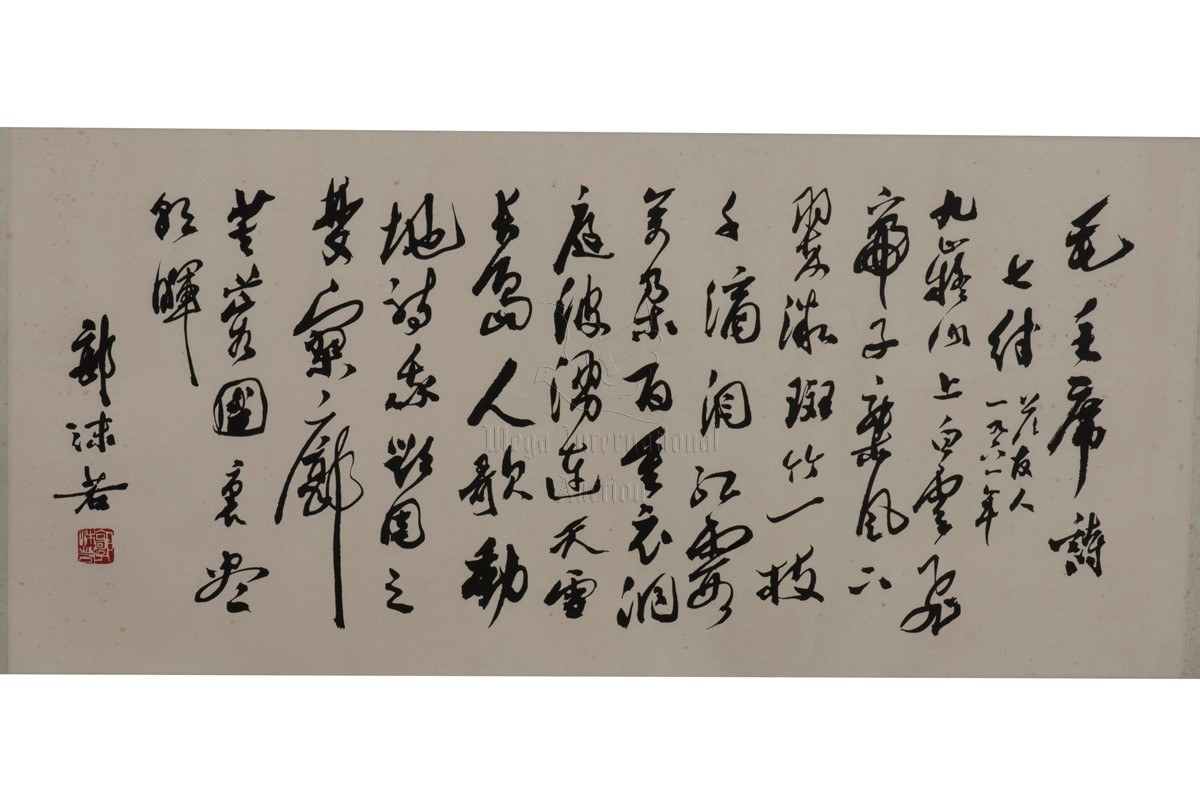 毛主席詩
七律
答友人
一九六一年
九嶷山上白雲飛
帝子乘風下
翠微斑竹一枝
千滴泪紅霞
萬朵百重衣洞
庭波湧連天雪
長島人歌動
地詩我欲因之
夢寥廓
芙蓉國裏尽
朝暉
郭沫若
郭沫若
Mega International
Auction